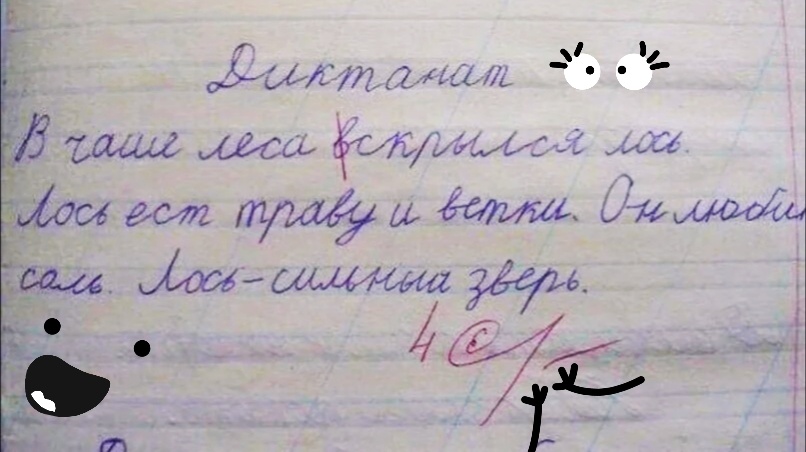 Диктанат
В чаше леса вскрылся лось.
Лось ест траву и ветки. Он люби
соль. Лось-сильныа зверь.
4